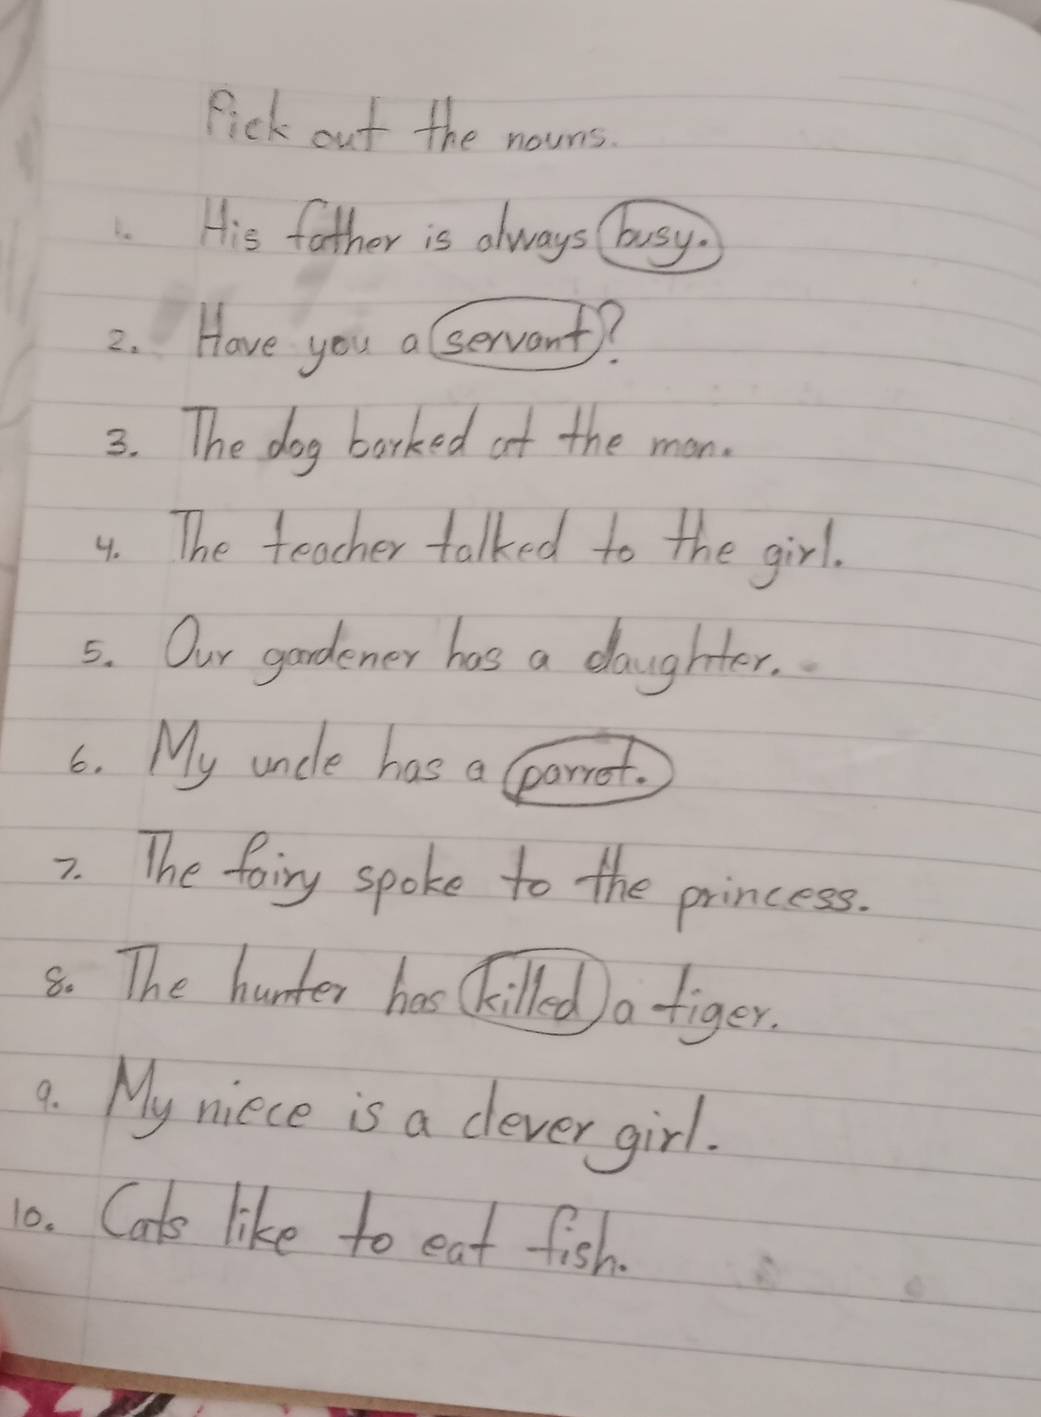 Pick out the nouns.
1. His father is always busy.
2. Have you a servant?
3. The dog barked at the man.
4. The teacher talked to the girl.
5. Our gardener has a daughter.
6. My uncle has a parrot.
7. The fairy spoke to the princess.
8. The hunter has killed a tiger.
9. My niece is a clever girl.
10. Cats like to eat fish.